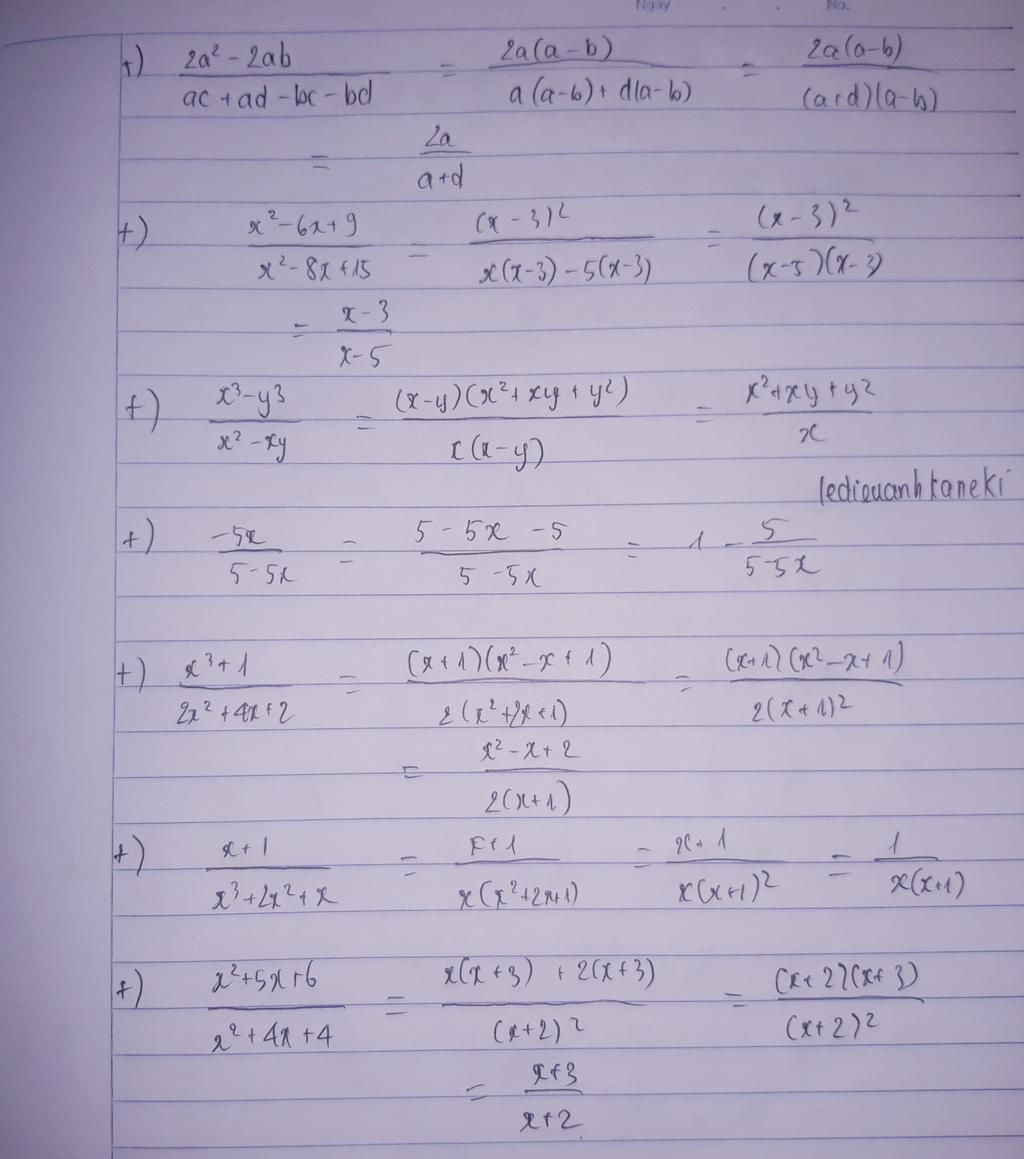 Ngày . . No.
+) \frac{2a² - 2ab}{ac + ad - bc - bd} = \frac{2a(a-b)}{a(a-b) + d(a-b)} = \frac{2a(a-b)}{(a+d)(a-b)}
= \frac{2a}{a+d}
+) \frac{x² - 6x + 9}{x² - 8x + 15} = \frac{(x-3)²}{x(x-3) - 5(x-3)} = \frac{(x-3)²}{(x-5)(x-3)}
= \frac{x-3}{x-5}
+) \frac{x³ - y³}{x² - xy} = \frac{(x-y)(x² + xy + y²)}{x(x-y)} = \frac{x² + xy + y²}{x}
ledieuanhkaneki
+) \frac{-5x}{5-5x} = \frac{5 - 5x - 5}{5 - 5x} = 1 - \frac{5}{5-5x}
+) \frac{x³ + 1}{2x² + 4x + 2} = \frac{(x+1)(x² - x + 1)}{2(x² + 2x + 1)} = \frac{(x+1)(x² - x + 1)}{2(x+1)²}
= \frac{x² - x + 2}{2(x+1)}
+) \frac{x+1}{x³ + 2x² + x} = \frac{x+1}{x(x² + 2x + 1)} = \frac{x+1}{x(x+1)²} = \frac{1}{x(x+1)}
+) \frac{x² + 5x + 6}{x² + 4x + 4} = \frac{x(x+3) + 2(x+3)}{(x+2)²} = \frac{(x+2)(x+3)}{(x+2)²}
= \frac{x+3}{x+2}